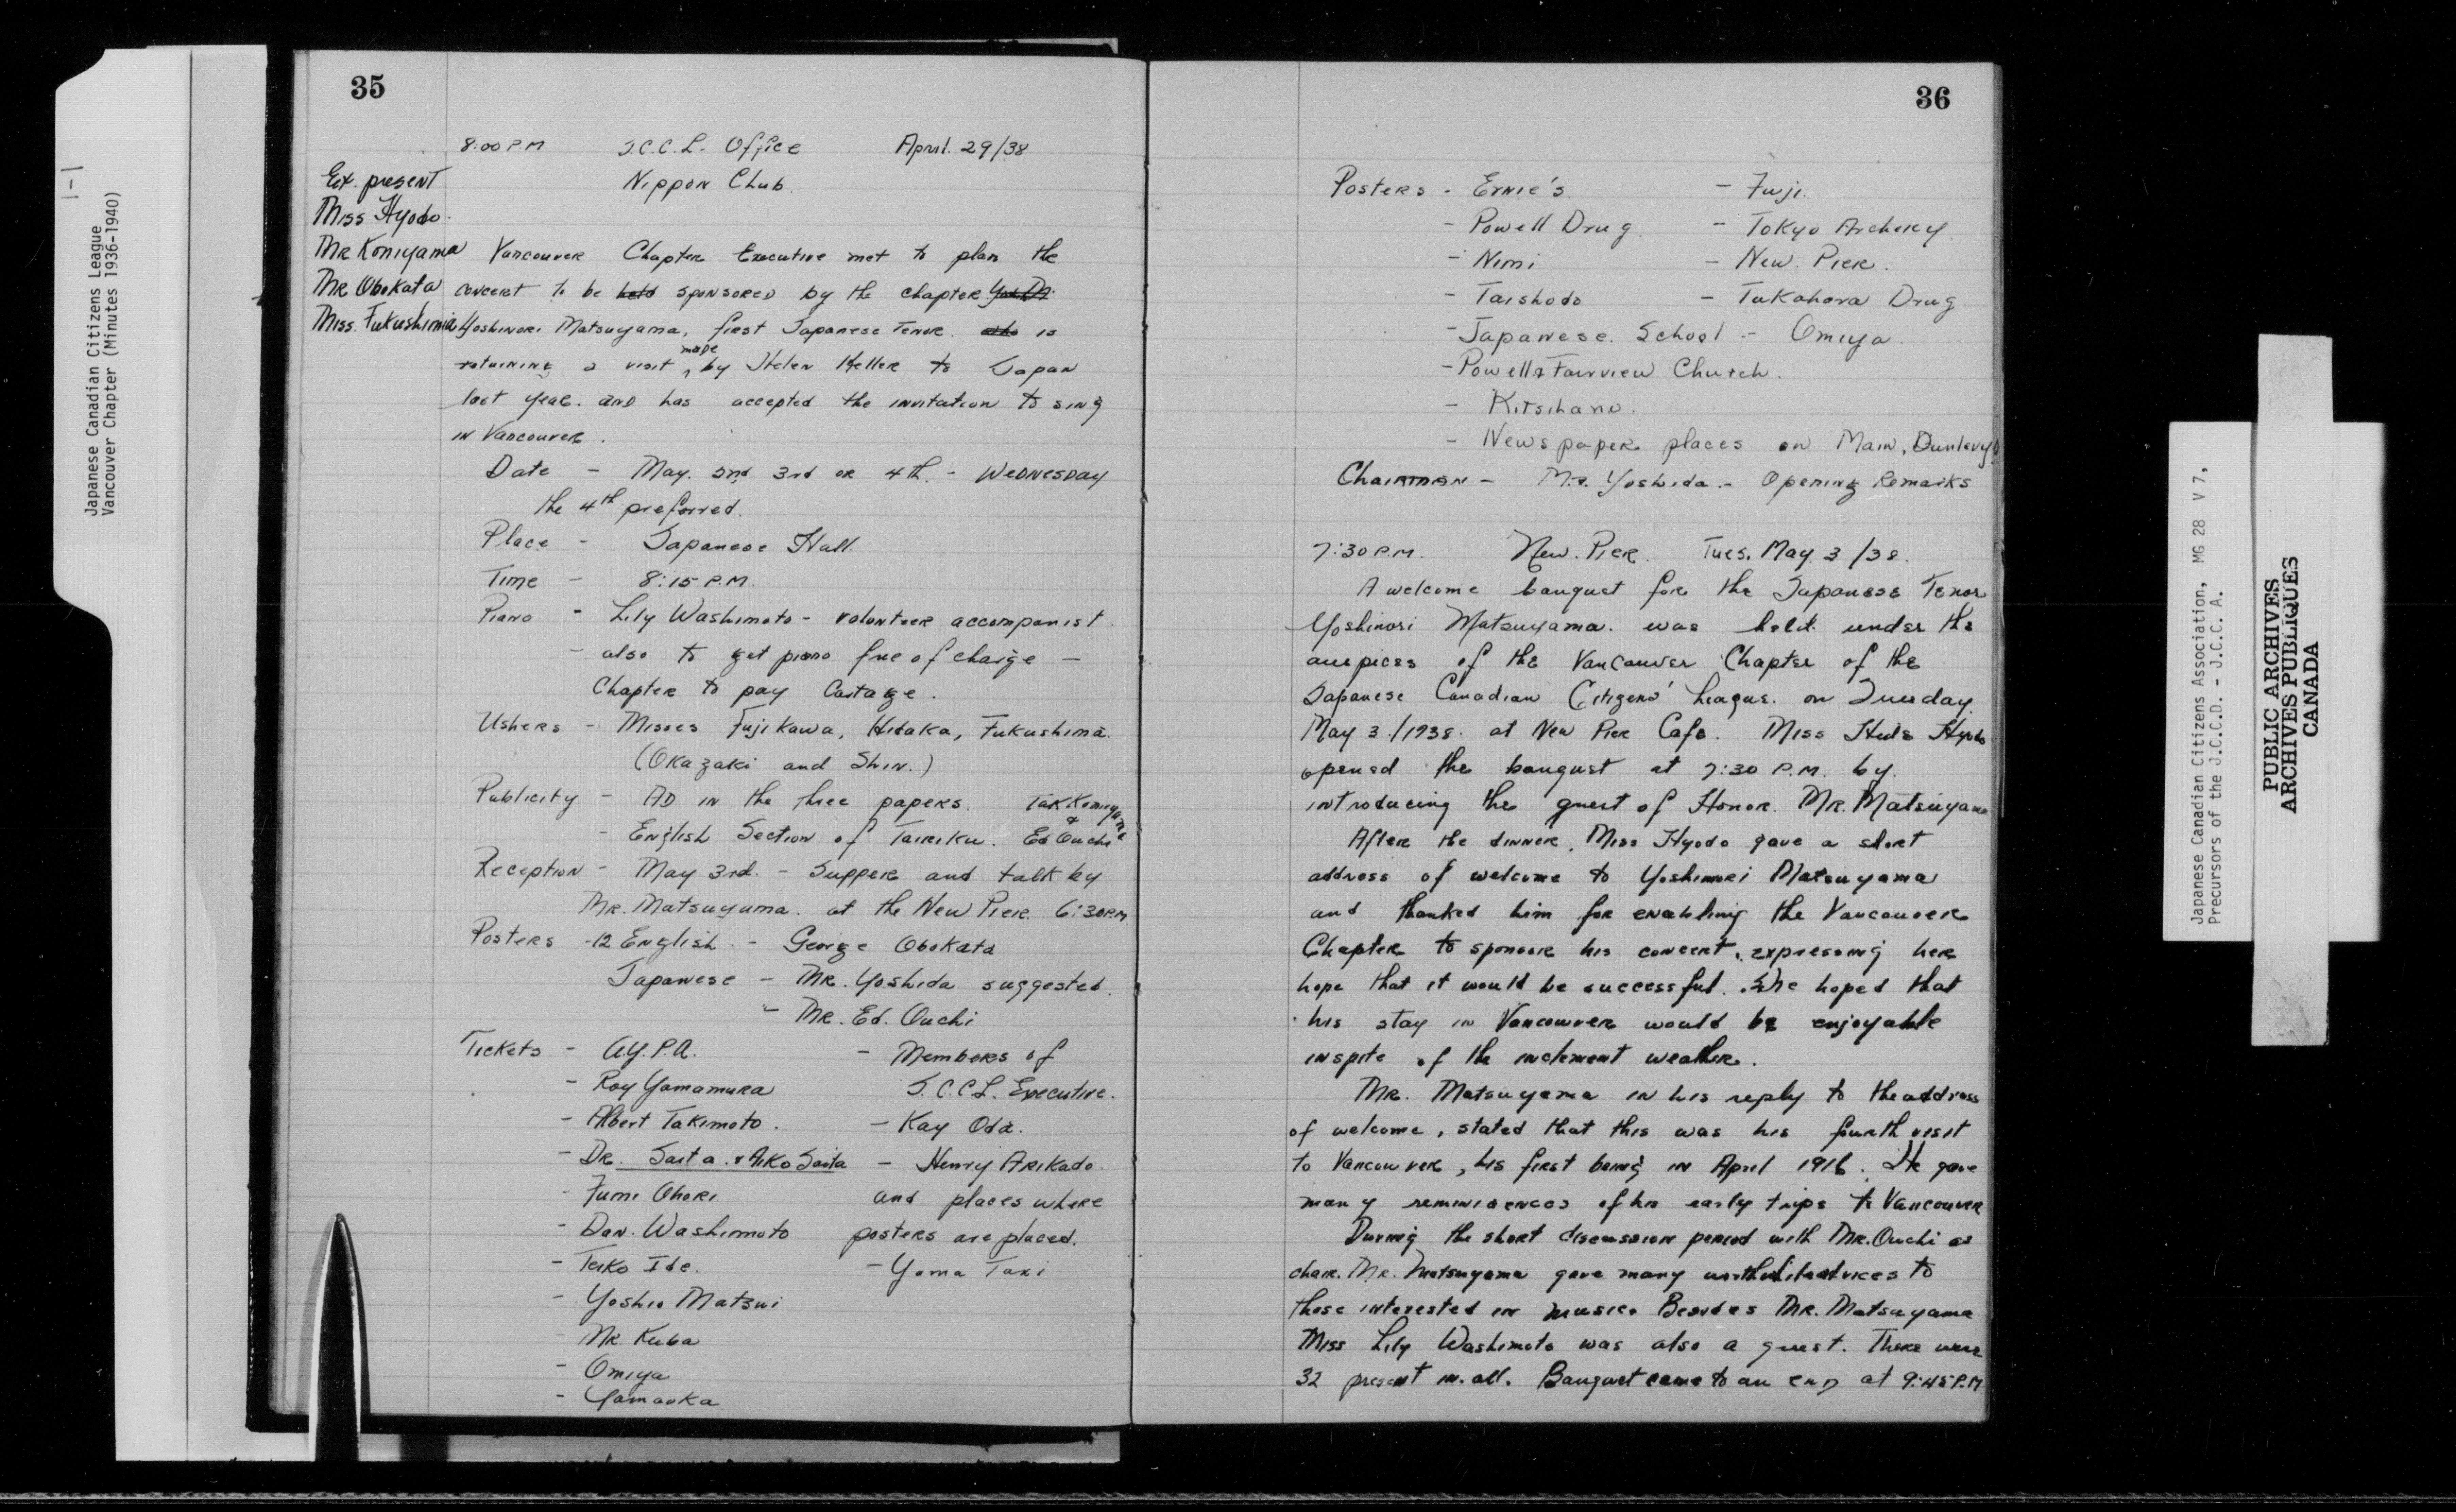 1-1
Japanese Canadian Citizens League
Vancouver Chapter (Minutes 1936-1940)
35
8:00 P.M J.C.C.L. Office April. 29/38
Ex. present Nippon Club.
Miss Hyodo.
Mr Komiyama Vancouver Chapter Executive met to plan the
Mr Obokata concert to be held sponsored by the chapter
Miss. Fukushima Yoshinori Matsuyama, first Japanese Tenor. who is
returning a visit made by Helen Keller to Japan
last year. and has accepted the invitation to sing
in Vancouver.
Date - May. 2nd 3rd or 4th. - Wednesday
the 4th preferred.
Place - Japanese Hall.
Time - 8:15 P.M.
Piano - Lily Washimoto - volonteer accompanist.
- also to get piano free of charge -
Chapter to pay Cartage.
Ushers - Misses Fujikawa, Hidaka, Fukushima.
(Okazaki and Shin.)
Publicity - AD in the three papers. Tak Komiyama
- English Section of Tairiku. & Ed Ouchi
Reception - May 3rd. - Supper and talk by
Mr. Matsuyama. at the New Pier. 6:30 P.M.
Posters - 12 English. - George Obokata
Japanese - Mr. Yoshida suggested.
- Mr. Ed. Ouchi
Tickets - A.Y.P.A. - Members of
- Roy Yamamura J.C.C.L. Executive.
- Albert Takimoto. - Kay Oda.
- Dr. Saita. & Aiko Saita - Henry Arikado.
- Fumi Ohori. and places where
- Dan. Washimoto posters are placed.
- Teiko Ide. - Yama Taxi
- Yoshio Matsui
- Mr. Kuba
- Omiya
- Yamaoka
36
Posters - Ernie's. - Fuji.
- Powell Drug. - Tokyo Archery.
- Nimi - New. Pier.
- Taishodo - Tukahara Drug.
- Japanese. School - Omiya.
- Powell & Fairview Church.
- Kitsilano.
- Newspaper places on Main, Dunlevy
Chairman - Mr. Yoshida. - Opening Remarks
7:30 P.M. New. Pier. Tues. May 3/38.
A welcome banquet for the Japanese Tenor
Yoshinori Matsuyama. was held under the
auspices of the Vancouver Chapter of the
Japanese Canadian Citizens' League. on Tuesday.
May 3./1938. at New Pier Cafe. Miss Hide Hyodo
opened the banquet at 7:30 P.M. by.
introducing the guest of Honor. Mr. Matsuyama
After the dinner, Miss Hyodo gave a short
address of welcome to Yoshinori Matsuyama
and thanked him for enabling the Vancouver
Chapter to sponsor his concert, expressing her
hope that it would be successful. She hoped that
his stay in Vancouver would be enjoyable
inspite of the inclement weather.
Mr. Matsuyama in his reply to the address
of welcome, stated that this was his fourth visit
to Vancouver, his first being in April 1916. He gave
many reminiscences of his early trips to Vancouver
During the short discussion period with Mr. Ouchi as
chair. Mr. Matsuyama gave many worthwhile advices to
those interested in music. Besides Mr. Matsuyama
Miss Lily Washimoto was also a guest. There were
32 present in. all. Banquet came to an end at 9:45 P.M
Japanese Canadian Citizens Association, MG 28 V 7,
Precursors of the J.C.C.D. - J.C.C. A.
PUBLIC ARCHIVES
ARCHIVES PUBLIQUES
CANADA